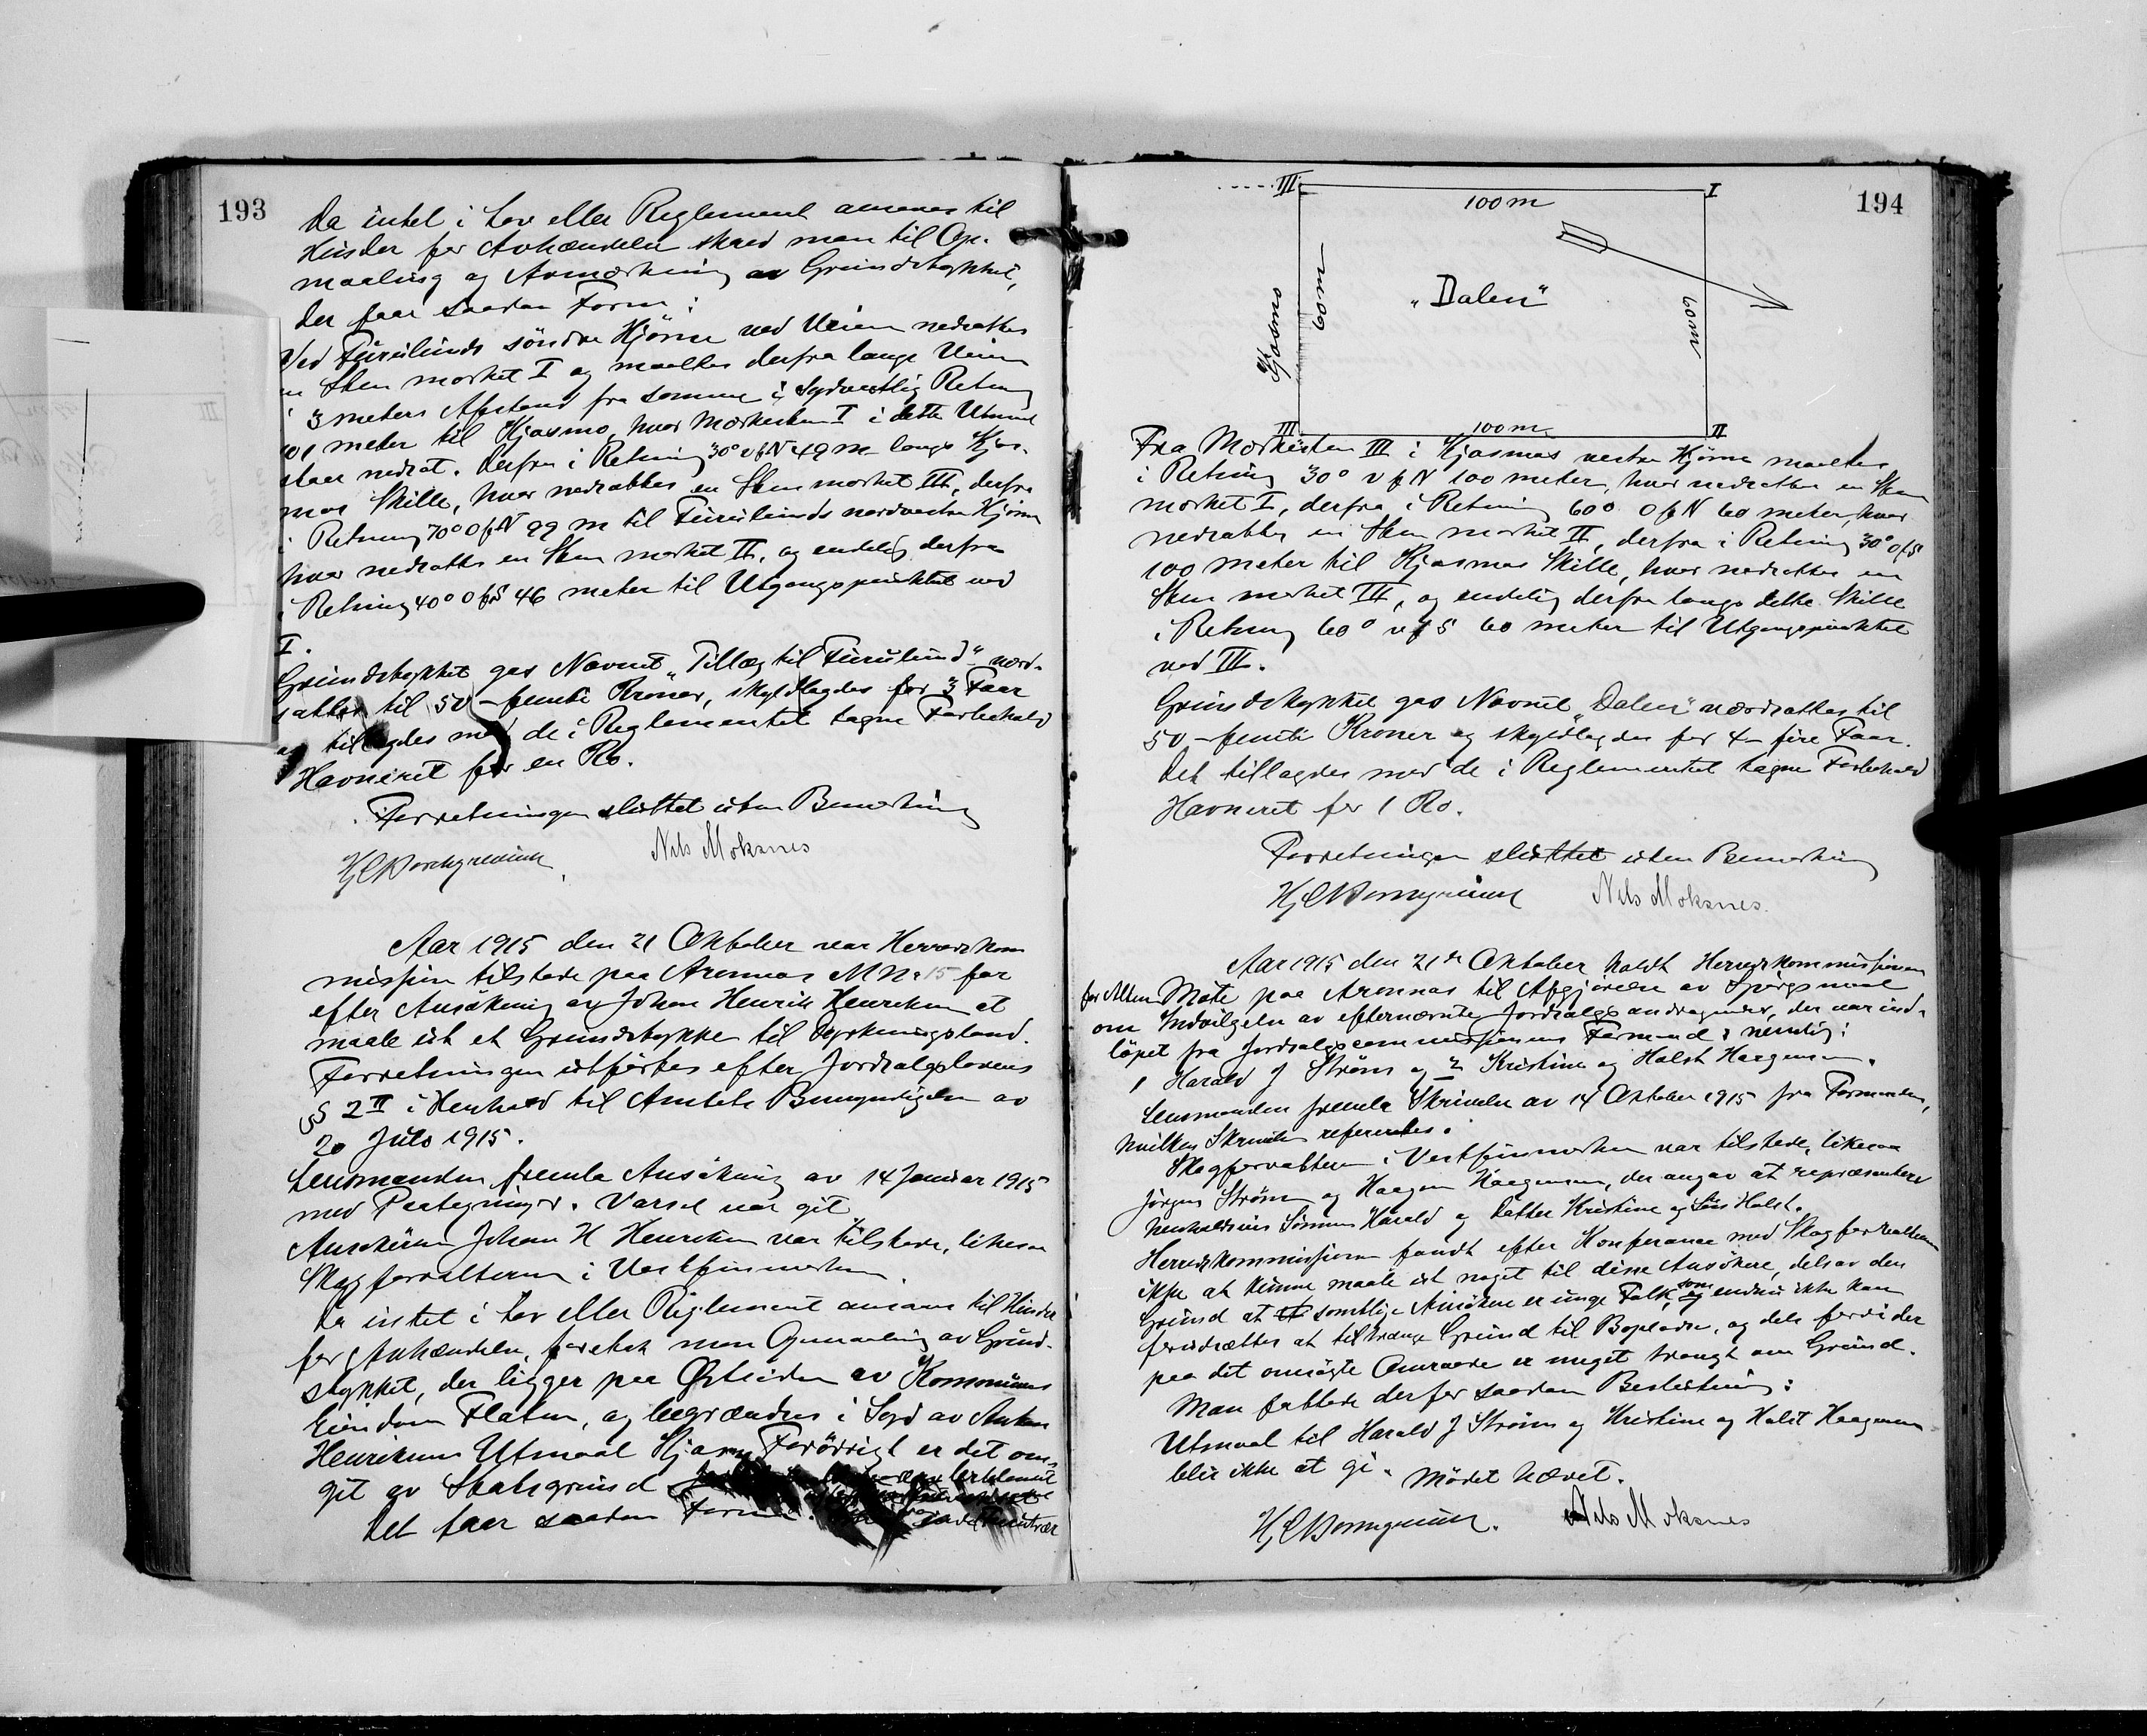 193
Da intet i Lov eller Reglement ansaaes til
Hinder for Avhændelse skred man til Op-
maaling og Avmerkning av Grundstykket,
der faar saadan Form:
Ved Furulunds söndre Hjörne ved Veien nedsattes
en Sten merket I og maaltes derfra langs Veien
i 3 meters Afstand fra samme i Sydvestlig Retning
101 meter til Kjosmo, hvor Merkesten I i dette Utmaal
staar nedsat. Derfra i Retning 30° v f N 49 m langs Kjos-
mos Skille, hvor nedsattes en Sten merket III, derfra
i Retning 70° O f N 99 m til Furulunds nordvestre Hjörne
hvor nedsattes en Sten merket II, og endelig derfra
i Retning 40° O f S 46 meter til Utgangspunktet ved
I.
Grundstykket gas Navnet "Tillæg til Furulund" værd-
sattes til 50 - femti Kroner, skyldlagdes for 3 Faar
og tillagdes med de i Reglementet tagne Forbehold
Havneret for en Ko.
Forretningen sluttet uten Bemerkning
Nils Moksnes
Aar 1915 den 21 Oktober var Herredskom
missjon tilstede paa Aronnes M Nr 15 for
efter Ansökning av Johan Henrik Henriksen at
maale ut et Grundstykke til Dyrkningsland.
Forretningen utförtes efter Jordsalgslovens
§ 2 II i Henhold til Amtets Bemyndigelse av
20 Juli 1915.
Lensmanden fremla Ansökning av 14 Januar 1915
med Paategninger. Varsel var git
Ansökeren Johan H Henriksen var tilstede, likesaa
Skogforvalteren i Vestfinmarken.
Da intet i Lov eller Reglement ansaaes til Hinder
for Avhændelse, foretok man Opmaaling av Grund-
stykket, der ligger paa Östsiden av Kommunens
Eiendom Flaten, og begrændses i Syd av Anton
Henriksens Utmaal Kjosmo. Forövrigt er det om-
git av Statsgrund
Det faar saadan Form.
194
III I
100 m
"Dalen"
Kjosmo
60 m
60 m
III 100 m II
Fra Merkesten III i Kjosmos vestre Hjörne maaltes
i Retning 30° v f N 100 meter, hvor nedsattes en Sten
merket I, derfra i Retning 60° O f N 60 meter, hvor
nedsattes en Sten merket II, derfra i Retning 30° O f S
100 meter til Kjosmos Skille, hvor nedsattes en
Sten merket III, og endelig derfra langs dette Skille
i Retning 60° v f S 60 meter til Utgangspunktet
ved III.
Grundstykket gas Navnet "Dalen" værdsattes til
50 - femti Kroner og skyldlagdes for 4 - fire Faar.
Det tillagdes med de i Reglementet tagne Forbehold
Havneret for 1 Ko.
Forretningen sluttet uten Bemerkning
Nils Moksnes.
Aar 1915 den 21de Oktober holdt Herredskommissjonen
for Alten Möte paa Aronnes til Afgjörelse av Spörgsmaal
om Indvilgelse av efternævnte Jordsalgsandragender, der var ind-
löpet fra Jordsalgscommissionens Formand; nemlig:
1 Harald J Ström og 2 Kristine og Halst Haagensen.
Lensmanden fremla Skrivelse av 14 Oktober 1915 fra Formanden,
hvilken Skrivelse refereredes.
Skogforvalteren i Vestfinmarken var tilstede, likesaa
Jörgen Ström og Haagen Haagensen, der angav at repræsentere
henholdsvis Sönnen Harald og Datter Kristine og Sön Halst.
Herredskommissjonen fandt efter Konferance med Skogforvalteren
ikke at kunne maale ut noget til disse Ansökere, dels av den
Grund at samtlige Ansökere er unge Folk, som endnu ikke kan
forutsættes at tiltrænge Grund til Bopladse, og dels fordi der
paa det omsögte Omraade er meget trangt om Grund.
Man fattede derfor saadan Beslutning:
Utmaal til Harald J Ström og Kristine og Halst Haagensen
blir ikke at gi. Mödet hævet.
Nils Moksnes